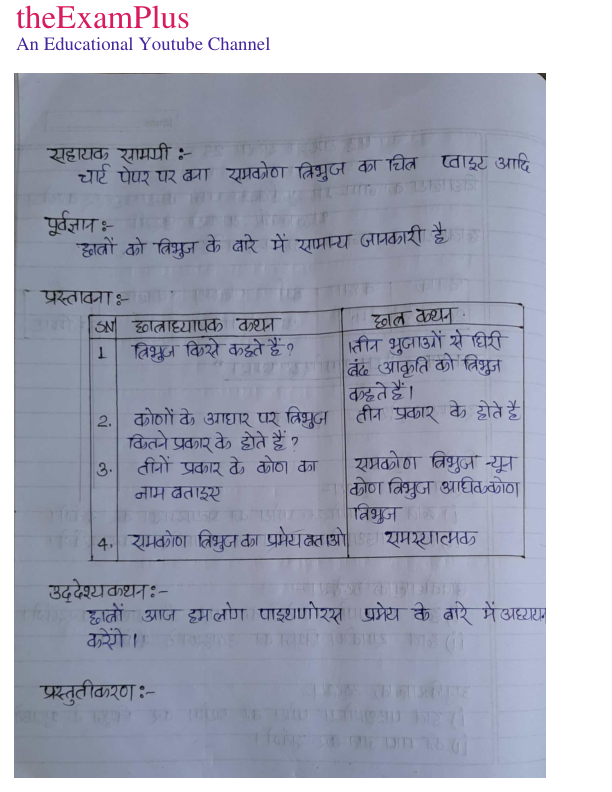 theExamPlus
An Educational Youtube Channel
सहायक सामग्री :-
चार्ट पेपर पर बना समकोण त्रिभुज का चित्र प्वाइट आदि
पूर्वज्ञान :-
छात्रों को त्रिभुज के बारे में सामान्य जानकारी है
प्रस्तावना :-
SN छात्राध्यापक कथन छात्र कथन
1 त्रिभुज किसे कहते हैं ? तीन भुजाओं से घिरी
बंद आकृति को त्रिभुज
कहते हैं।
2. कोणों के आधार पर त्रिभुज तीन प्रकार के होते है
कितने प्रकार के होते हैं ?
3. तीनों प्रकार के कोण का समकोण त्रिभुज न्यून
नाम बताइए कोण त्रिभुज अधिककोण
त्रिभुज
4. समकोण त्रिभुज का प्रमेय बताओ समस्यात्मक
उद्देश्य कथन :-
छात्रों आज हम लोग पाइथागोरस प्रमेय के बारे में अध्ययन
करेंगे।
प्रस्तुतीकरण :-